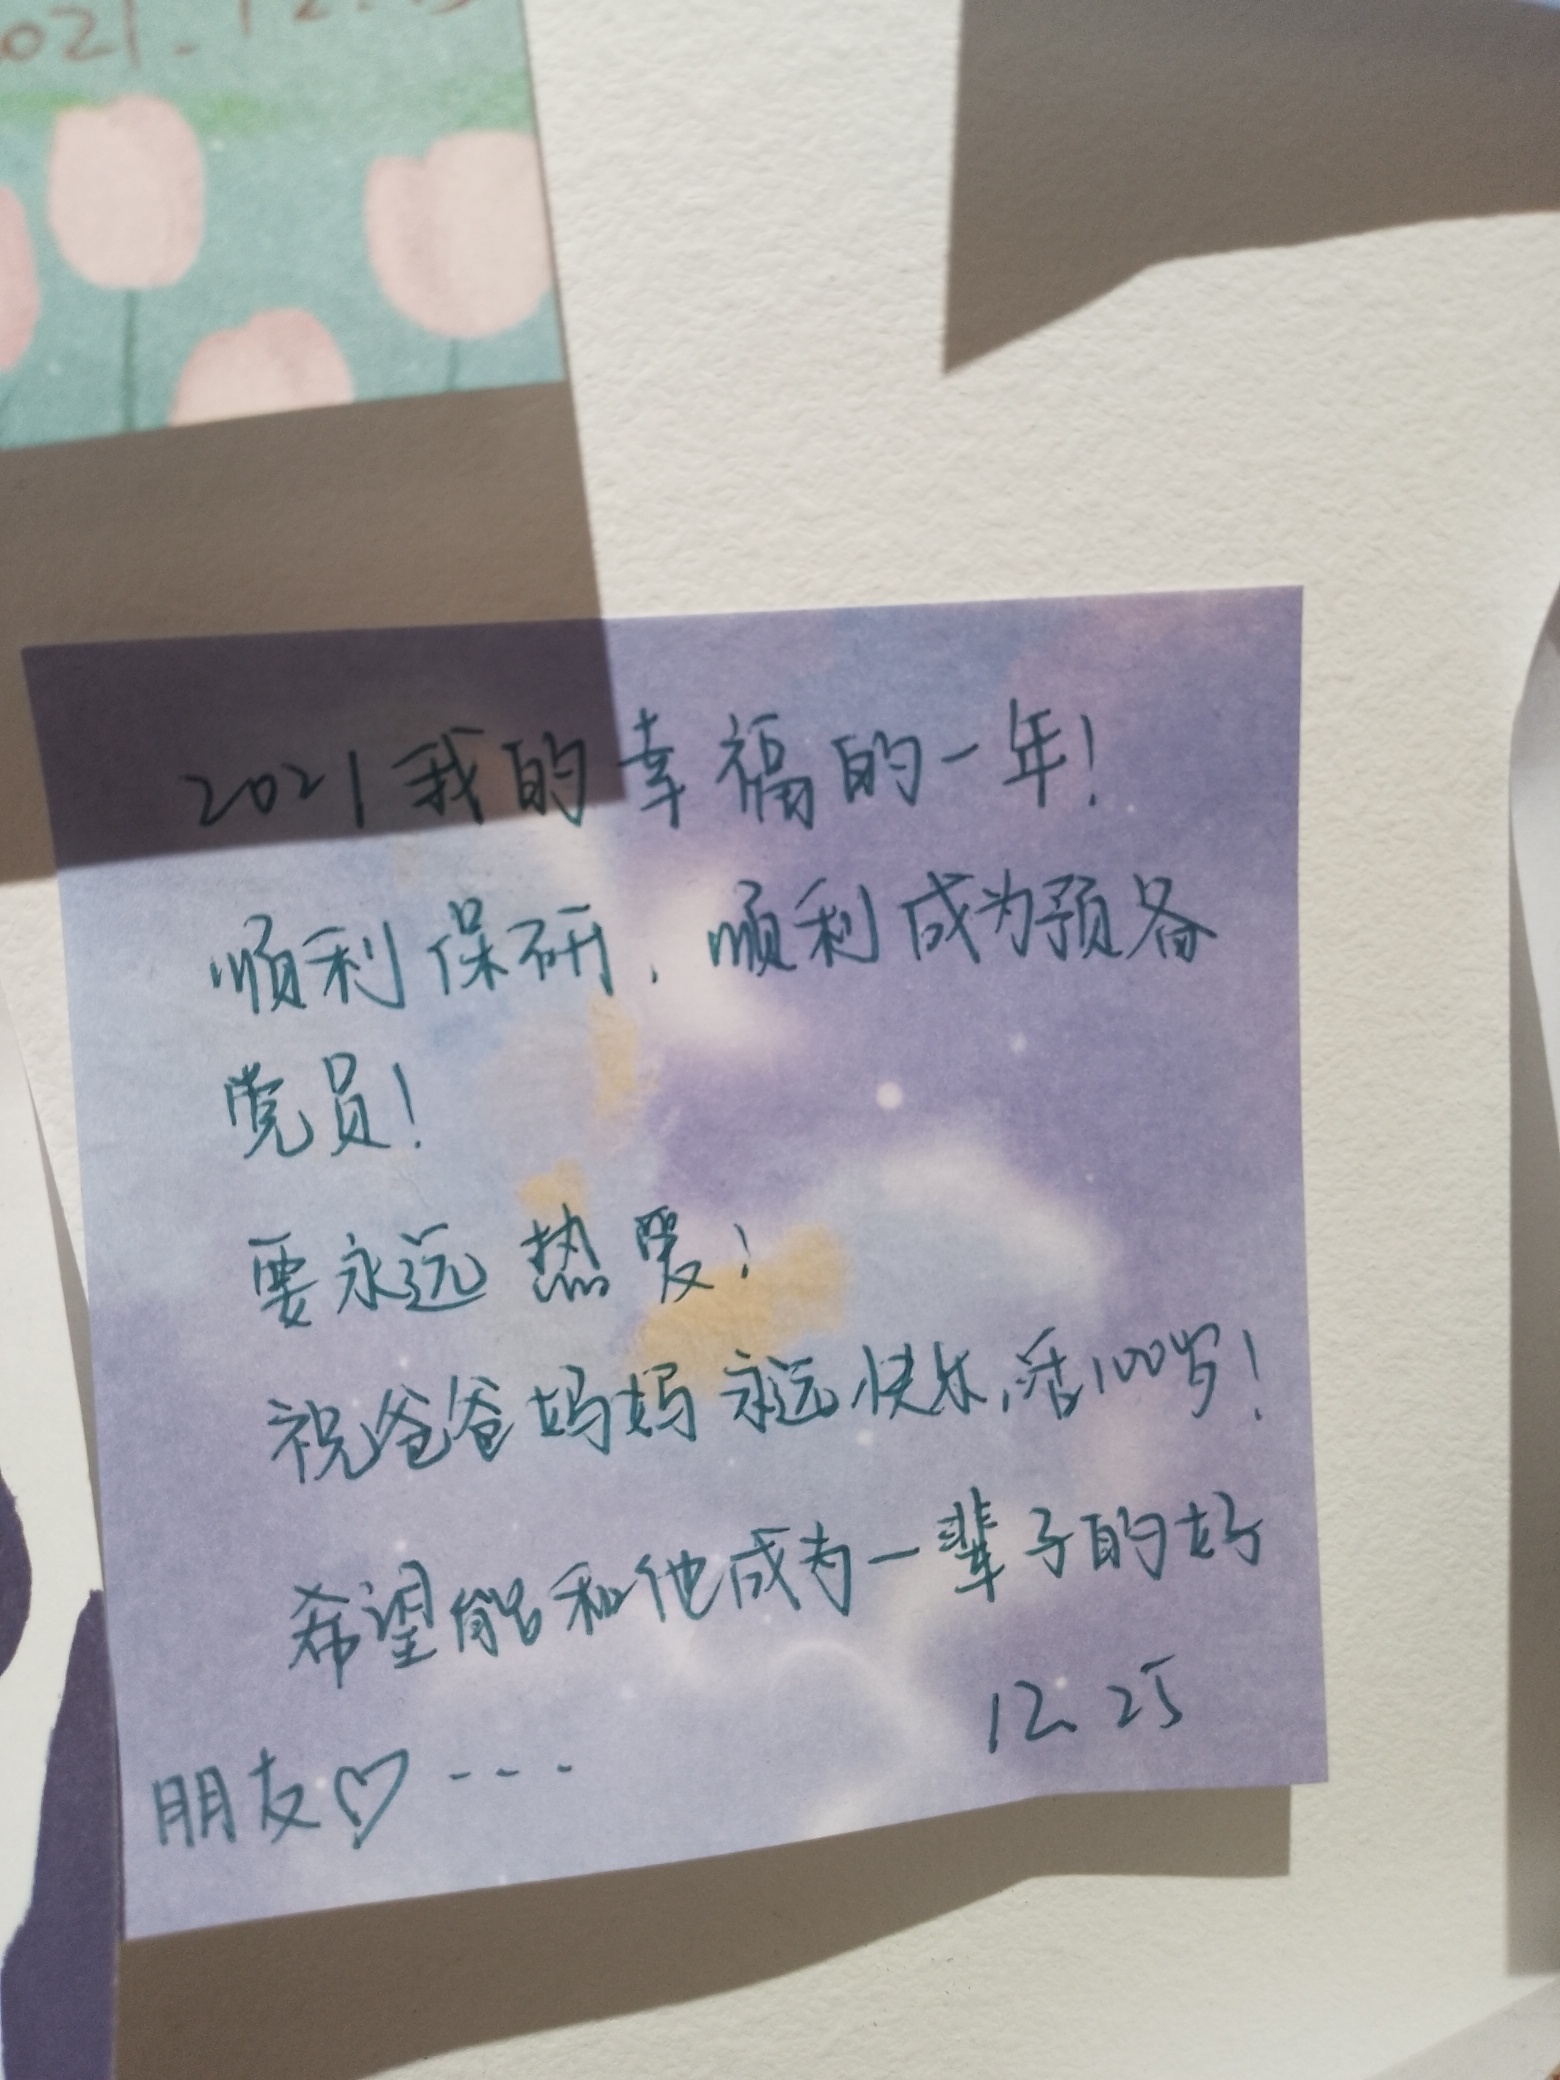 2021我的幸福的一年!
顺利保研,顺利成为预备
党员!
要永远 热爱!
祝爸爸妈妈永远快乐,活100岁!
希望能和他成为一辈子的好
12.25
朋友♡----